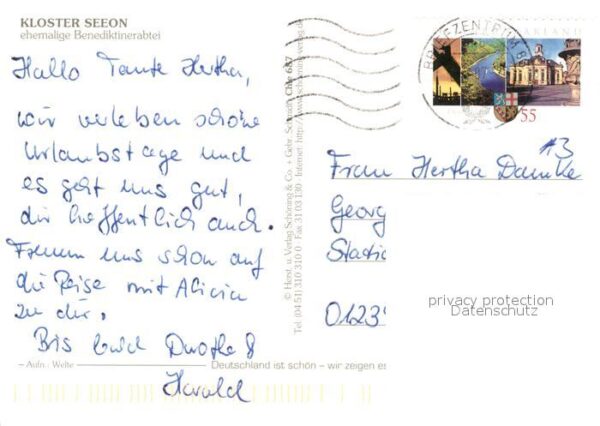 KLOSTER SEEON
ehemalige Benediktinerabtei
Hallo Tante Hertha,
wir verleben schöne
Urlaubstage und
es geht uns gut,
dir hoffentlich auch.
Freuen uns schon auf
die Reise mit Alicia
zu dir.
Bis bald
Harald
Aufn.: Welte
Deutschland ist schön – wir zeigen es
© Herst. u. Verlag Schöning & Co. + Gebr. Schmidt Chie 687
Tel. (04 51) 310 310 0 Fax 31 03 130 Internet: http://www.schoening-verlag.de
BRIEFZENTRUM 8
ARLAND
55
13
Frau Hertha
Georg
Stadio
0123
privacy protection
Datenschutz